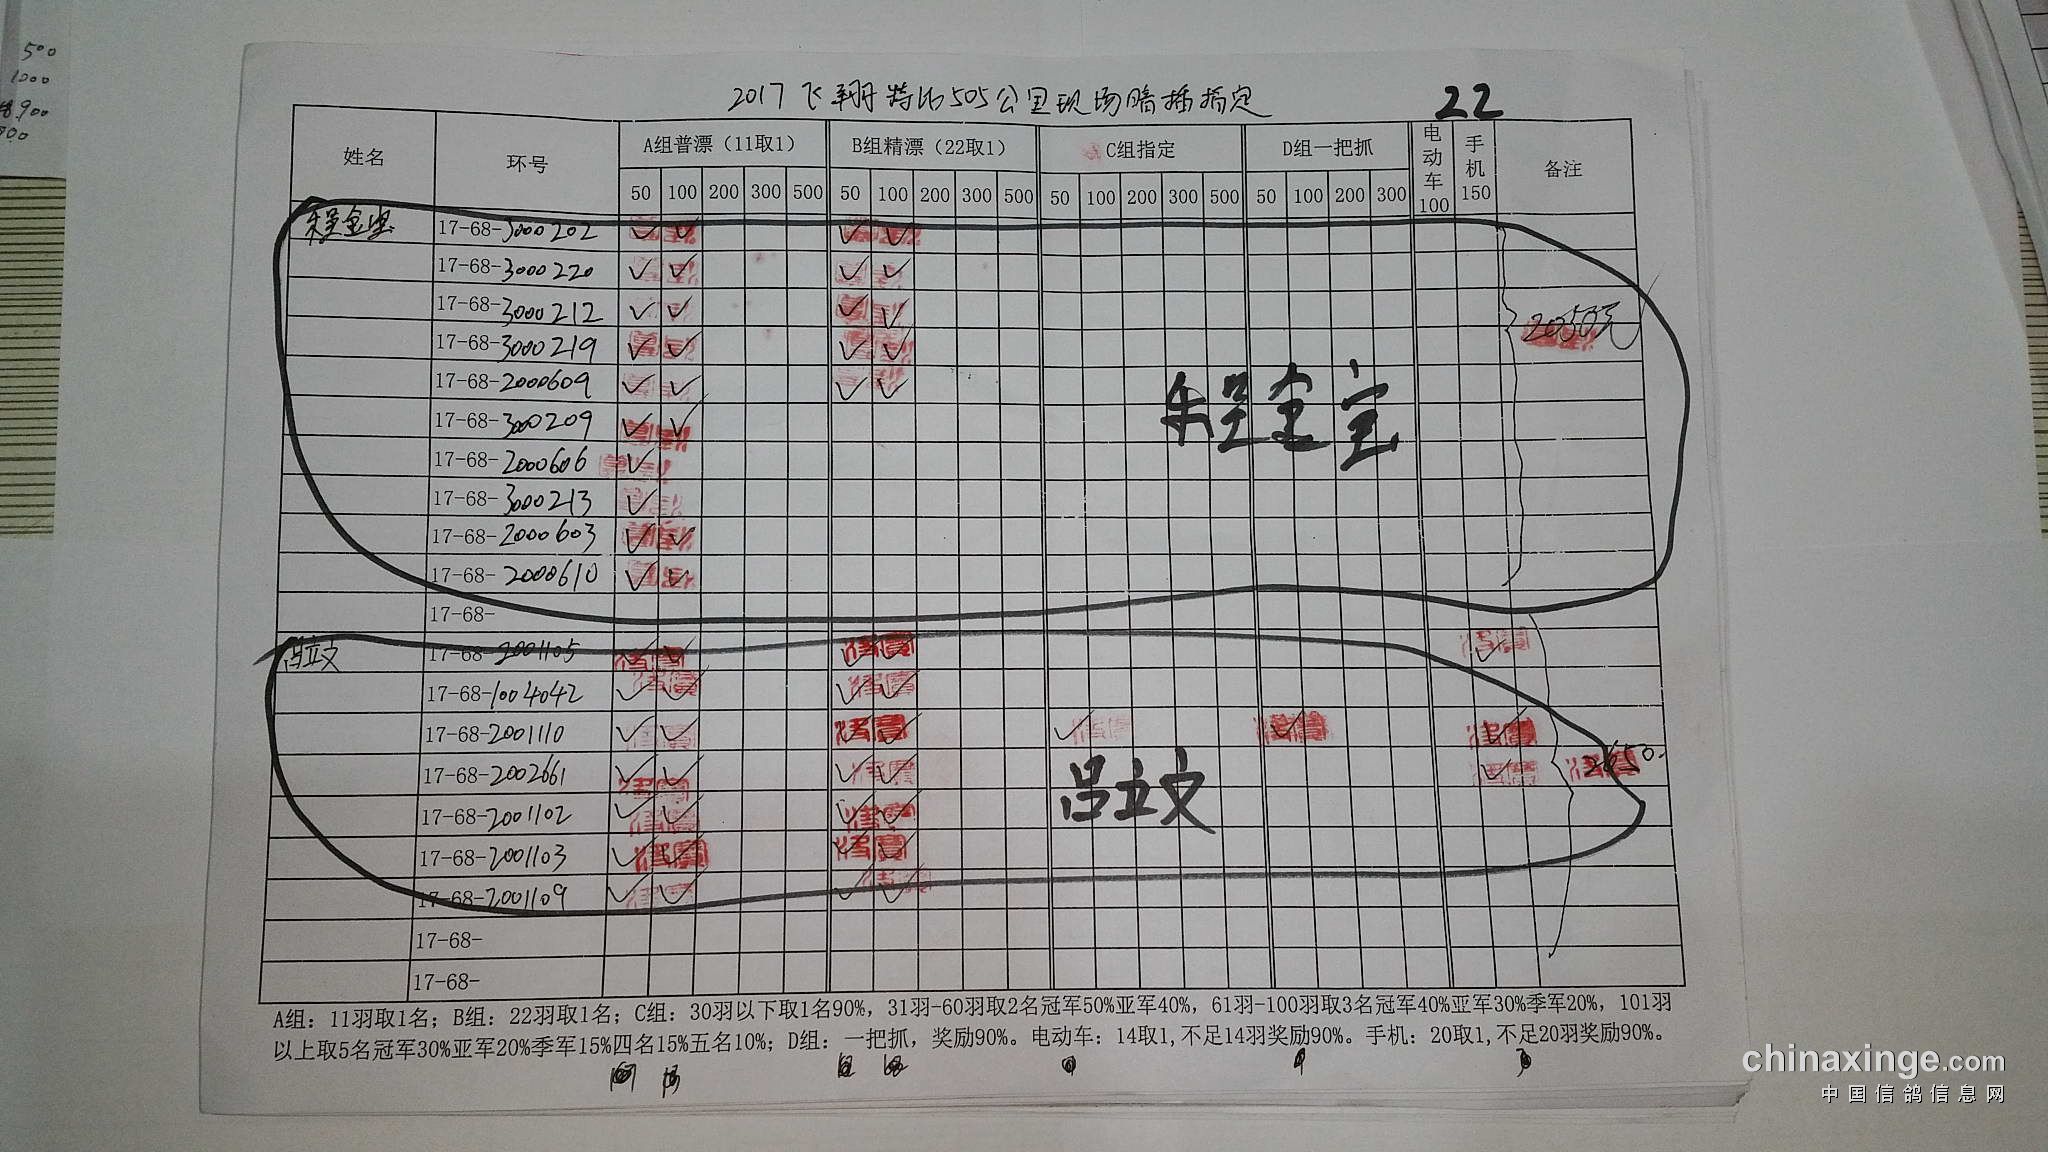 500
1000
900
2017飞翔特比505公里现场暗插指定 22
姓名 环号 A组普漂（11取1） B组精漂（22取1） C组指定 D组一把抓 电动车100 手机150 备注
50 100 200 300 500 50 100 200 300 500 50 100 200 300 500 50 100 200 300
17-68-3000202 ✓ ✓ ✓ ✓
17-68-3000220 ✓ ✓ ✓ ✓
17-68-3000212 ✓ ✓ ✓ ✓
17-68-3000219 ✓ ✓ ✓ ✓
17-68-2000609 ✓ ✓ ✓ ✓
17-68-3000209 ✓ ✓
17-68-2000606 ✓
17-68-3000213 ✓
17-68-2000603 ✓ ✓
17-68-2000610 ✓ ✓
17-68-
2050元
吕立文 17-68-2001105 ✓ ✓ ✓ ✓ ✓
17-68-1004042 ✓ ✓ ✓ ✓
17-68-2001110 ✓ ✓ ✓ ✓ ✓ ✓ ✓
17-68-2002661 ✓ ✓ ✓ ✓ ✓
17-68-2001102 ✓ ✓ ✓ ✓
17-68-2001103 ✓ ✓ ✓ ✓
17-68-2001109 ✓ ✓ ✓ ✓
17-68-
17-68-
吕立文
A组：11羽取1名；B组：22羽取1名；C组：30羽以下取1名90%，31羽-60羽取2名冠军50%亚军40%，61羽-100羽取3名冠军40%亚军30%季军20%，101羽
以上取5名冠军30%亚军20%季军15%四名15%五名10%；D组：一把抓，奖励90%。电动车：14取1,不足14羽奖励90%。手机：20取1,不足20羽奖励90%。
chinaxinge.com
中国信鸽信息网